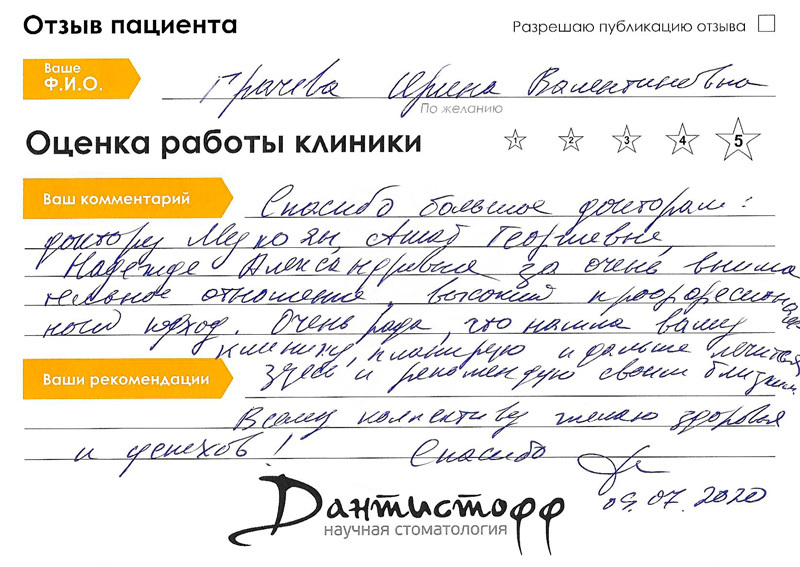 Отзыв пациента
Разрешаю публикацию отзыва
Ваше
Ф.И.О.
Грачева Ирина Валентиновна
По желанию
Оценка работы клиники
1 2 3 4 5
Ваш комментарий
Спасибо большое докторам:
доктору Георгиевне,
Надежде Александровне за очень внима
тельное отношение, высокий профессиональ
ный подход. Очень рада, что нашла вашу
клинику, планирую и дальше лечиться
Ваши рекомендации
здесь и рекомендую своим близким.
Всему коллективу желаю здоровья
и успехов! Спасибо
09.07.2020
Дантистофф
научная стоматология